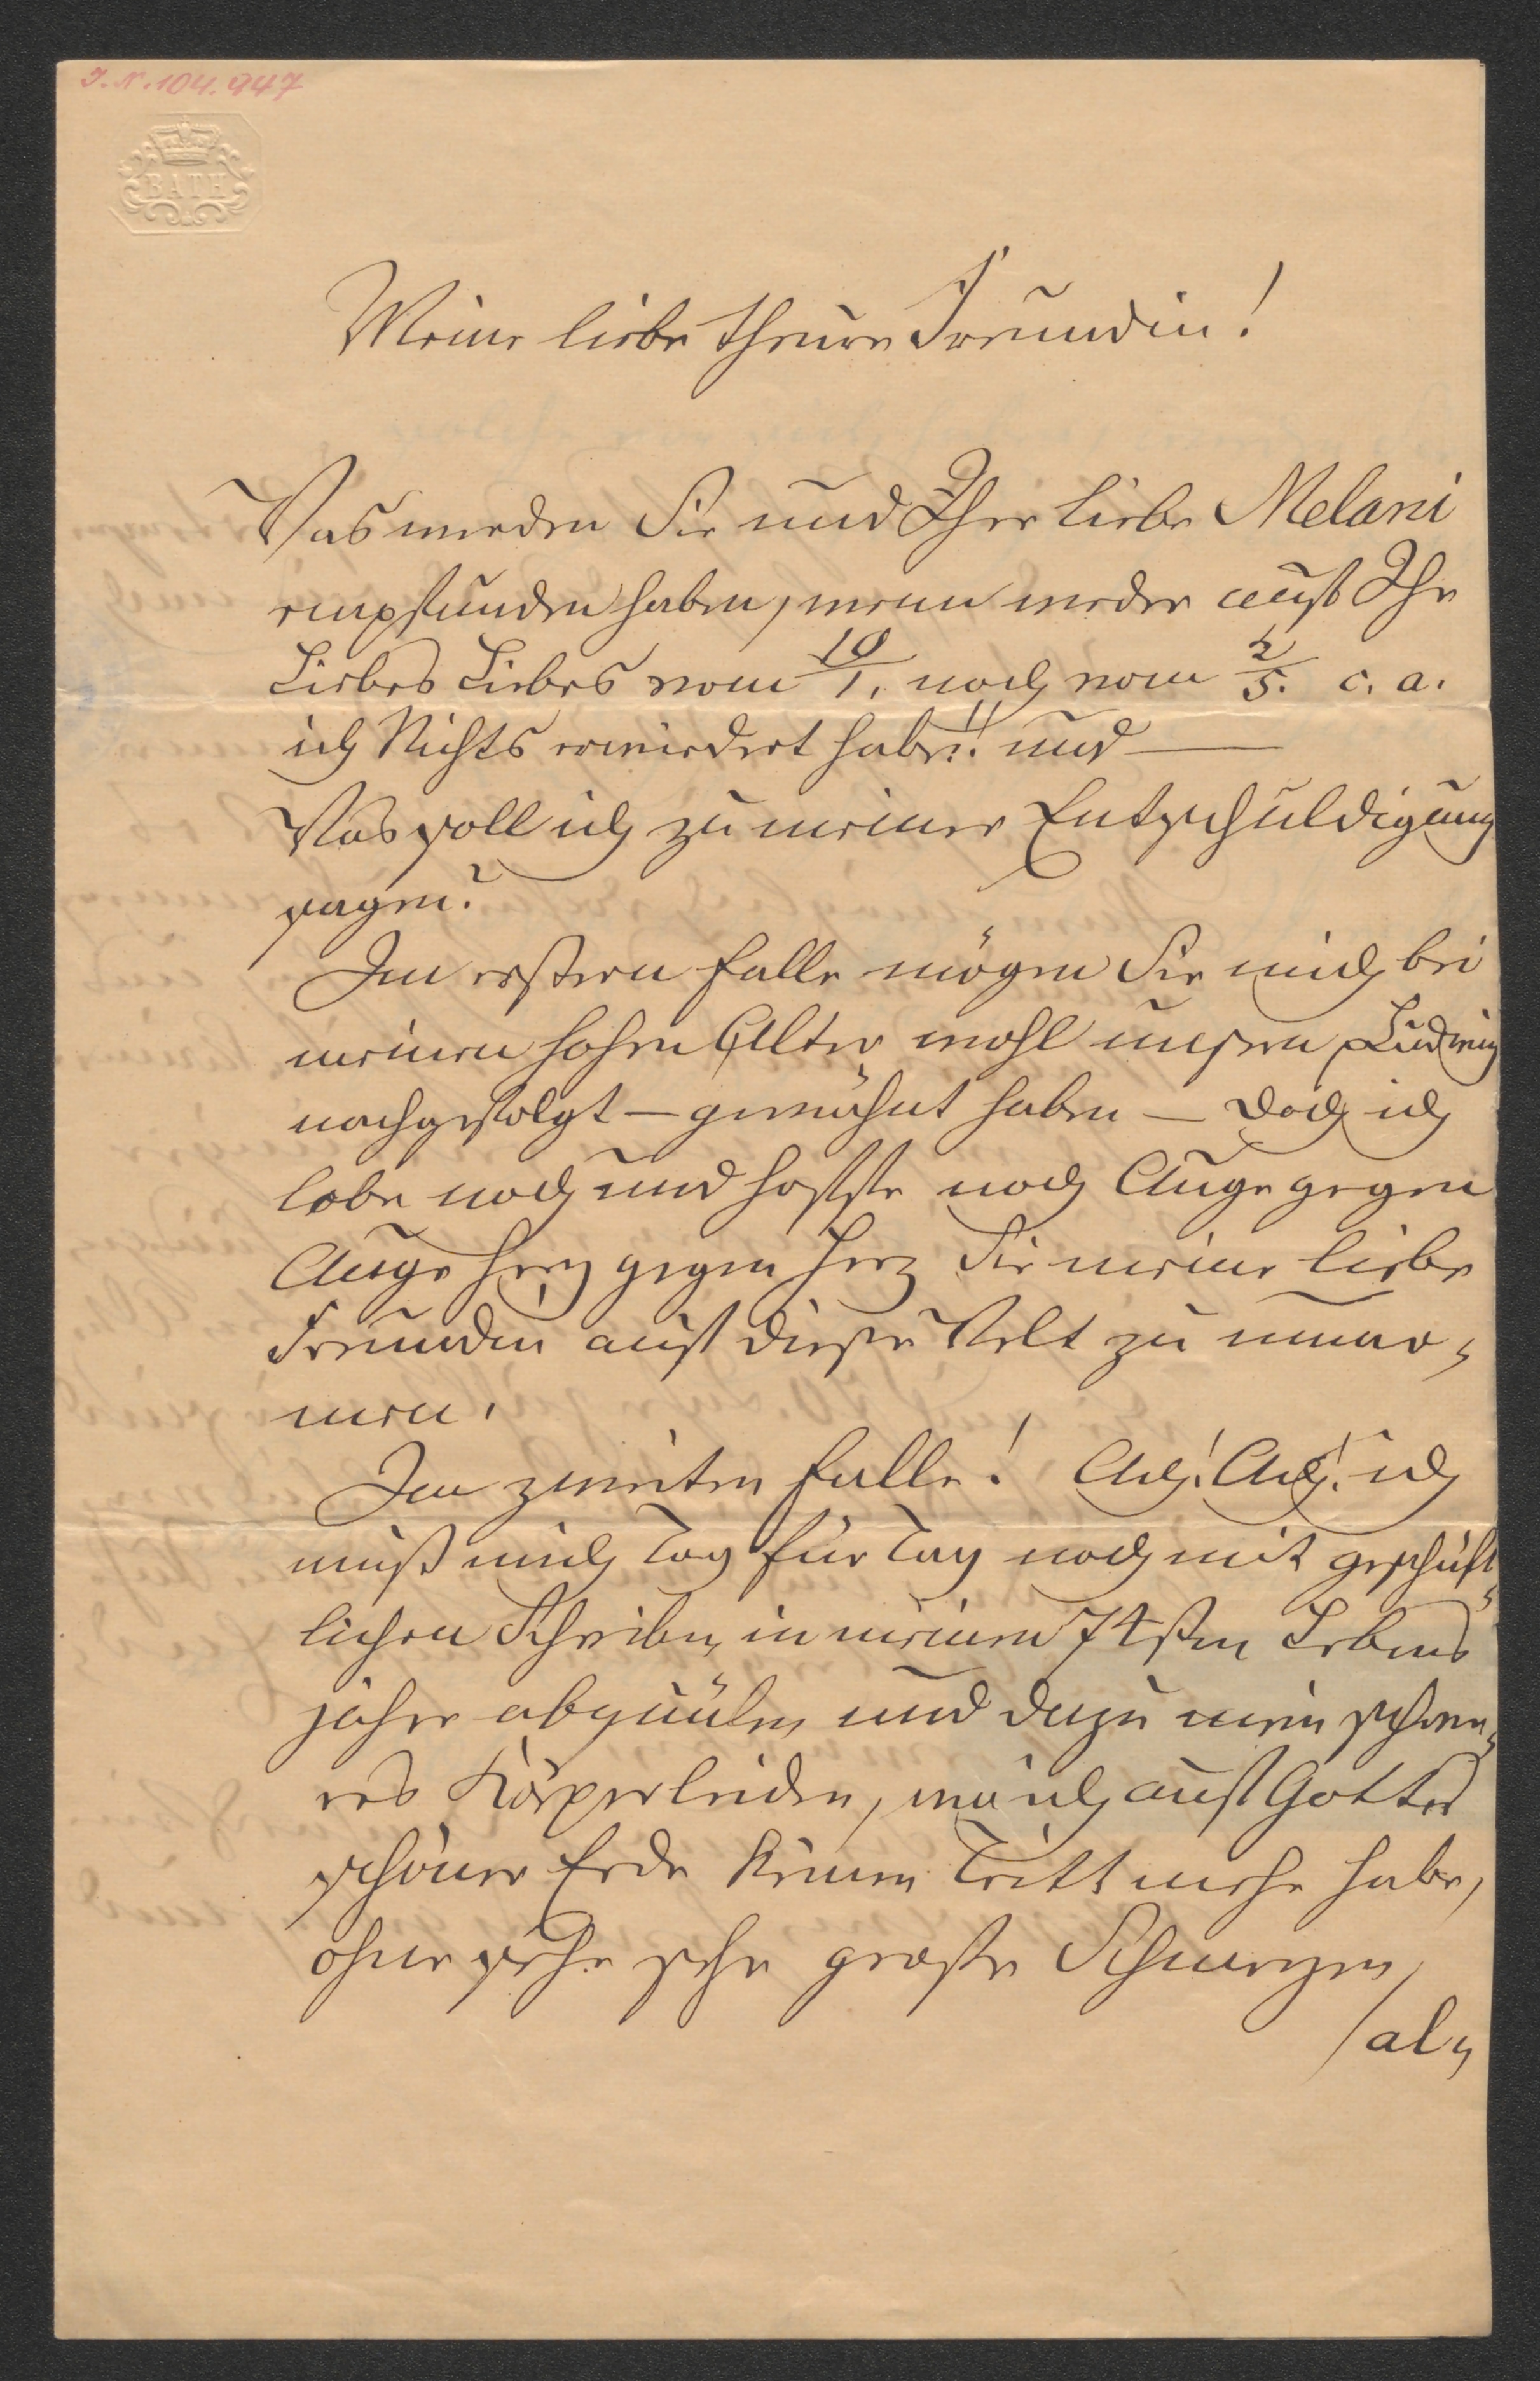 J. N. 104.947
BATH
Meine liebe theure Freundin!
Was werden Sie und Ihre liebe Melani
empfunden haben, wenn weder auf Ihr
Liebes Liebes vom 10/1. noch vom 2/5. c. a.
ich Nichts erwiedert habe!! und —
Was soll ich zu meiner Entschuldigung
sagen?
Im erstern Falle mögen Sie mich bei
meinem hohen Alter wohl unsern Ludwig
nachgefolgt – gewähnt haben – doch ich
lebe noch und hoffe noch Auge gegen
Auge Herz gegen Herz Sie meine liebe
Freundin auf dieser Welt zu umar-
men.
Im zweiten Falle! Ach! Ach! ich
muß mich Tag für Tag noch mit geschäft-
lichen Schreiben in meinem 74sten Lebens
jahre abquälen und dazu mein schwe-
res Körperleiden, wo ich auf Gottes
schöner Erde keinen Tritt mehr habe,
ohne sehr sehr große Schmerzen,
/als